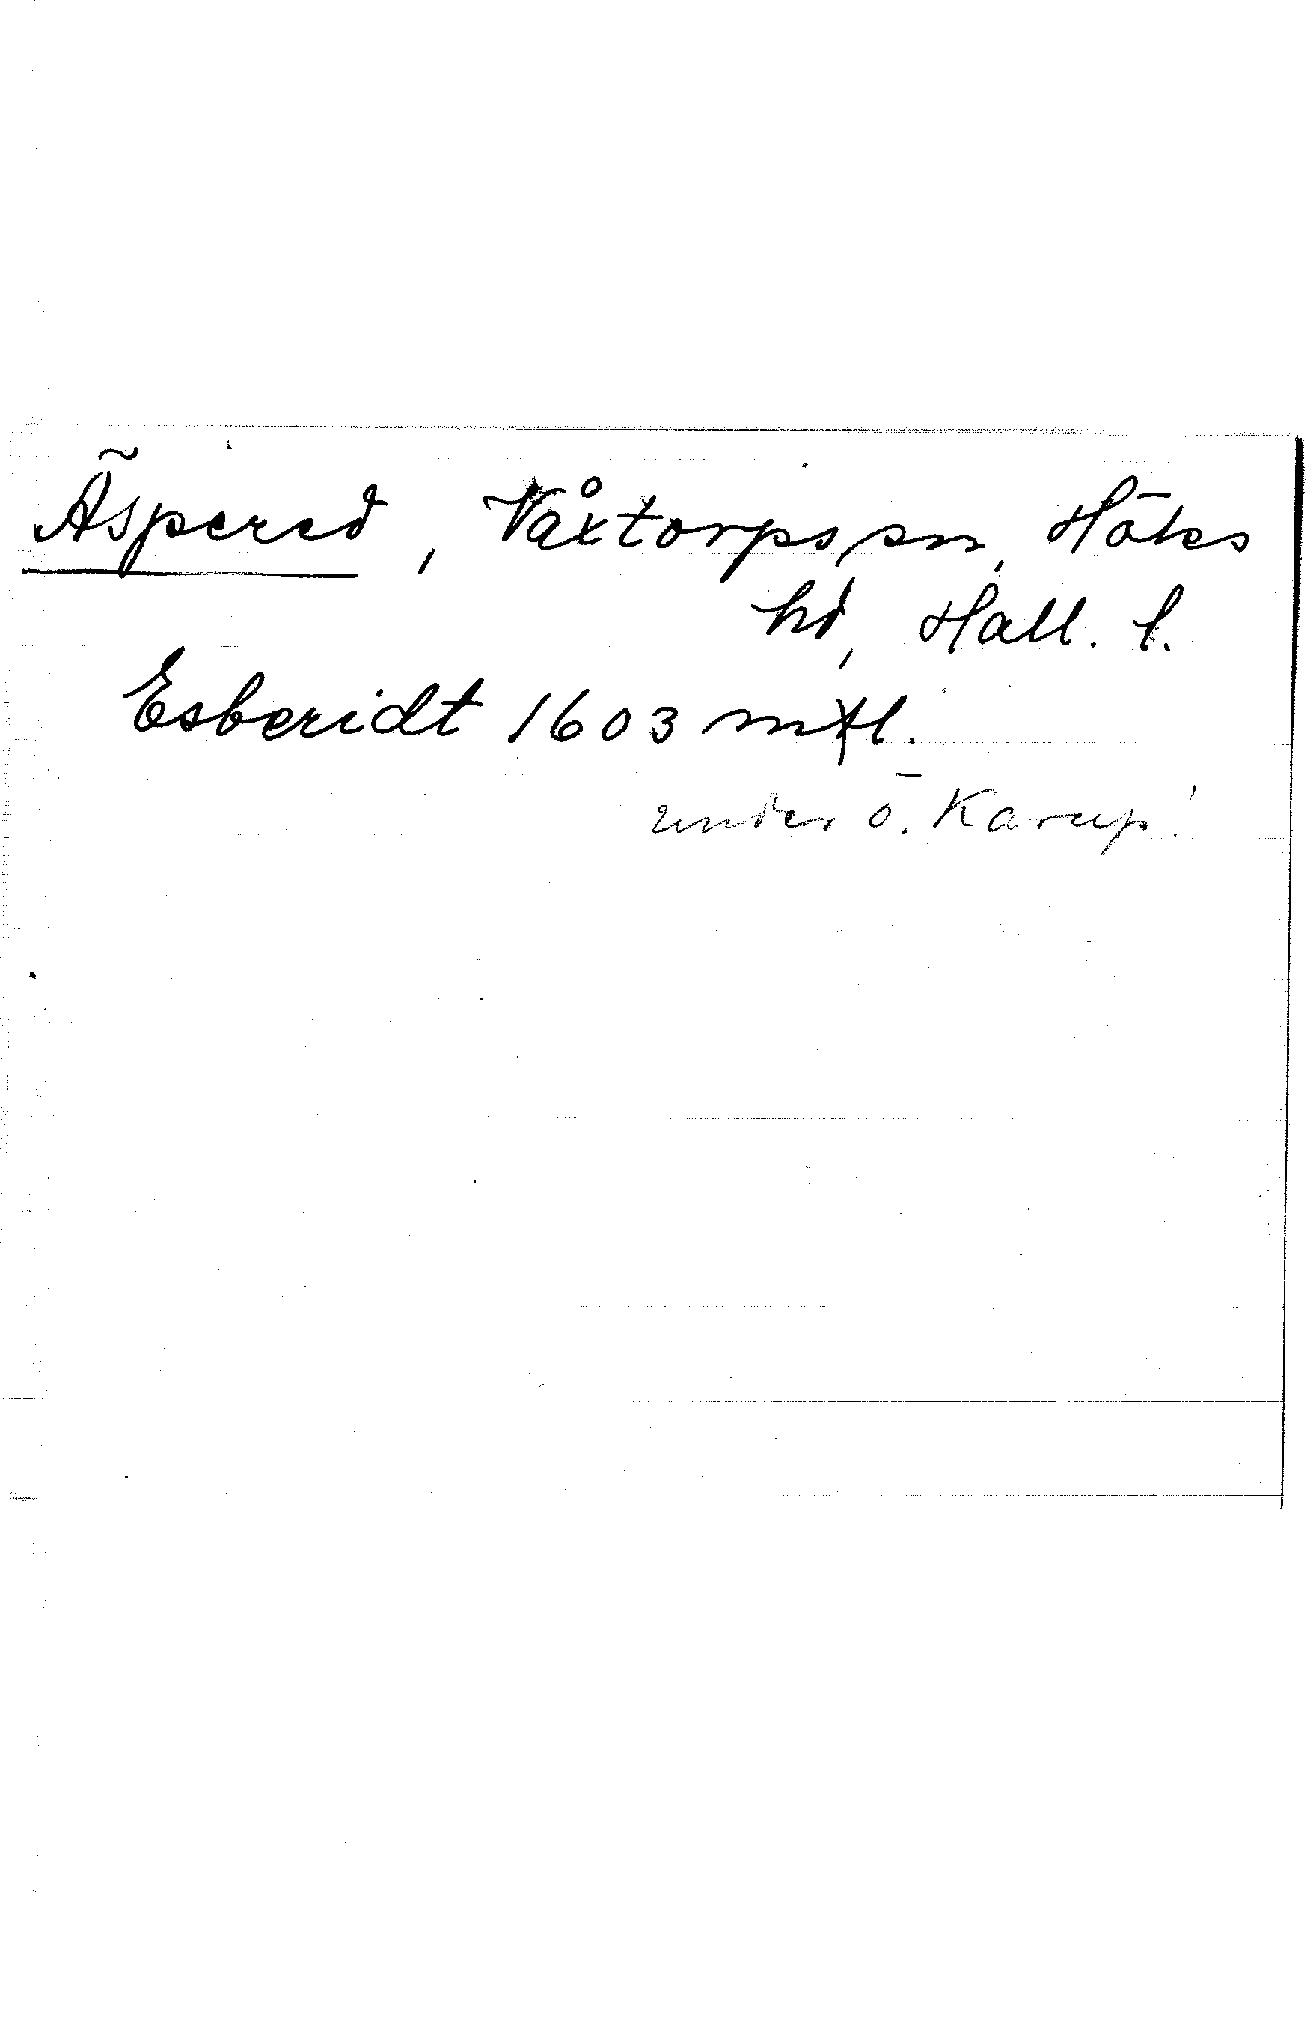 Äspered, Våxtorps sn, Höks
hd, Hall. l.
Esberidt 1603 mfl.
under Ö. Karup!